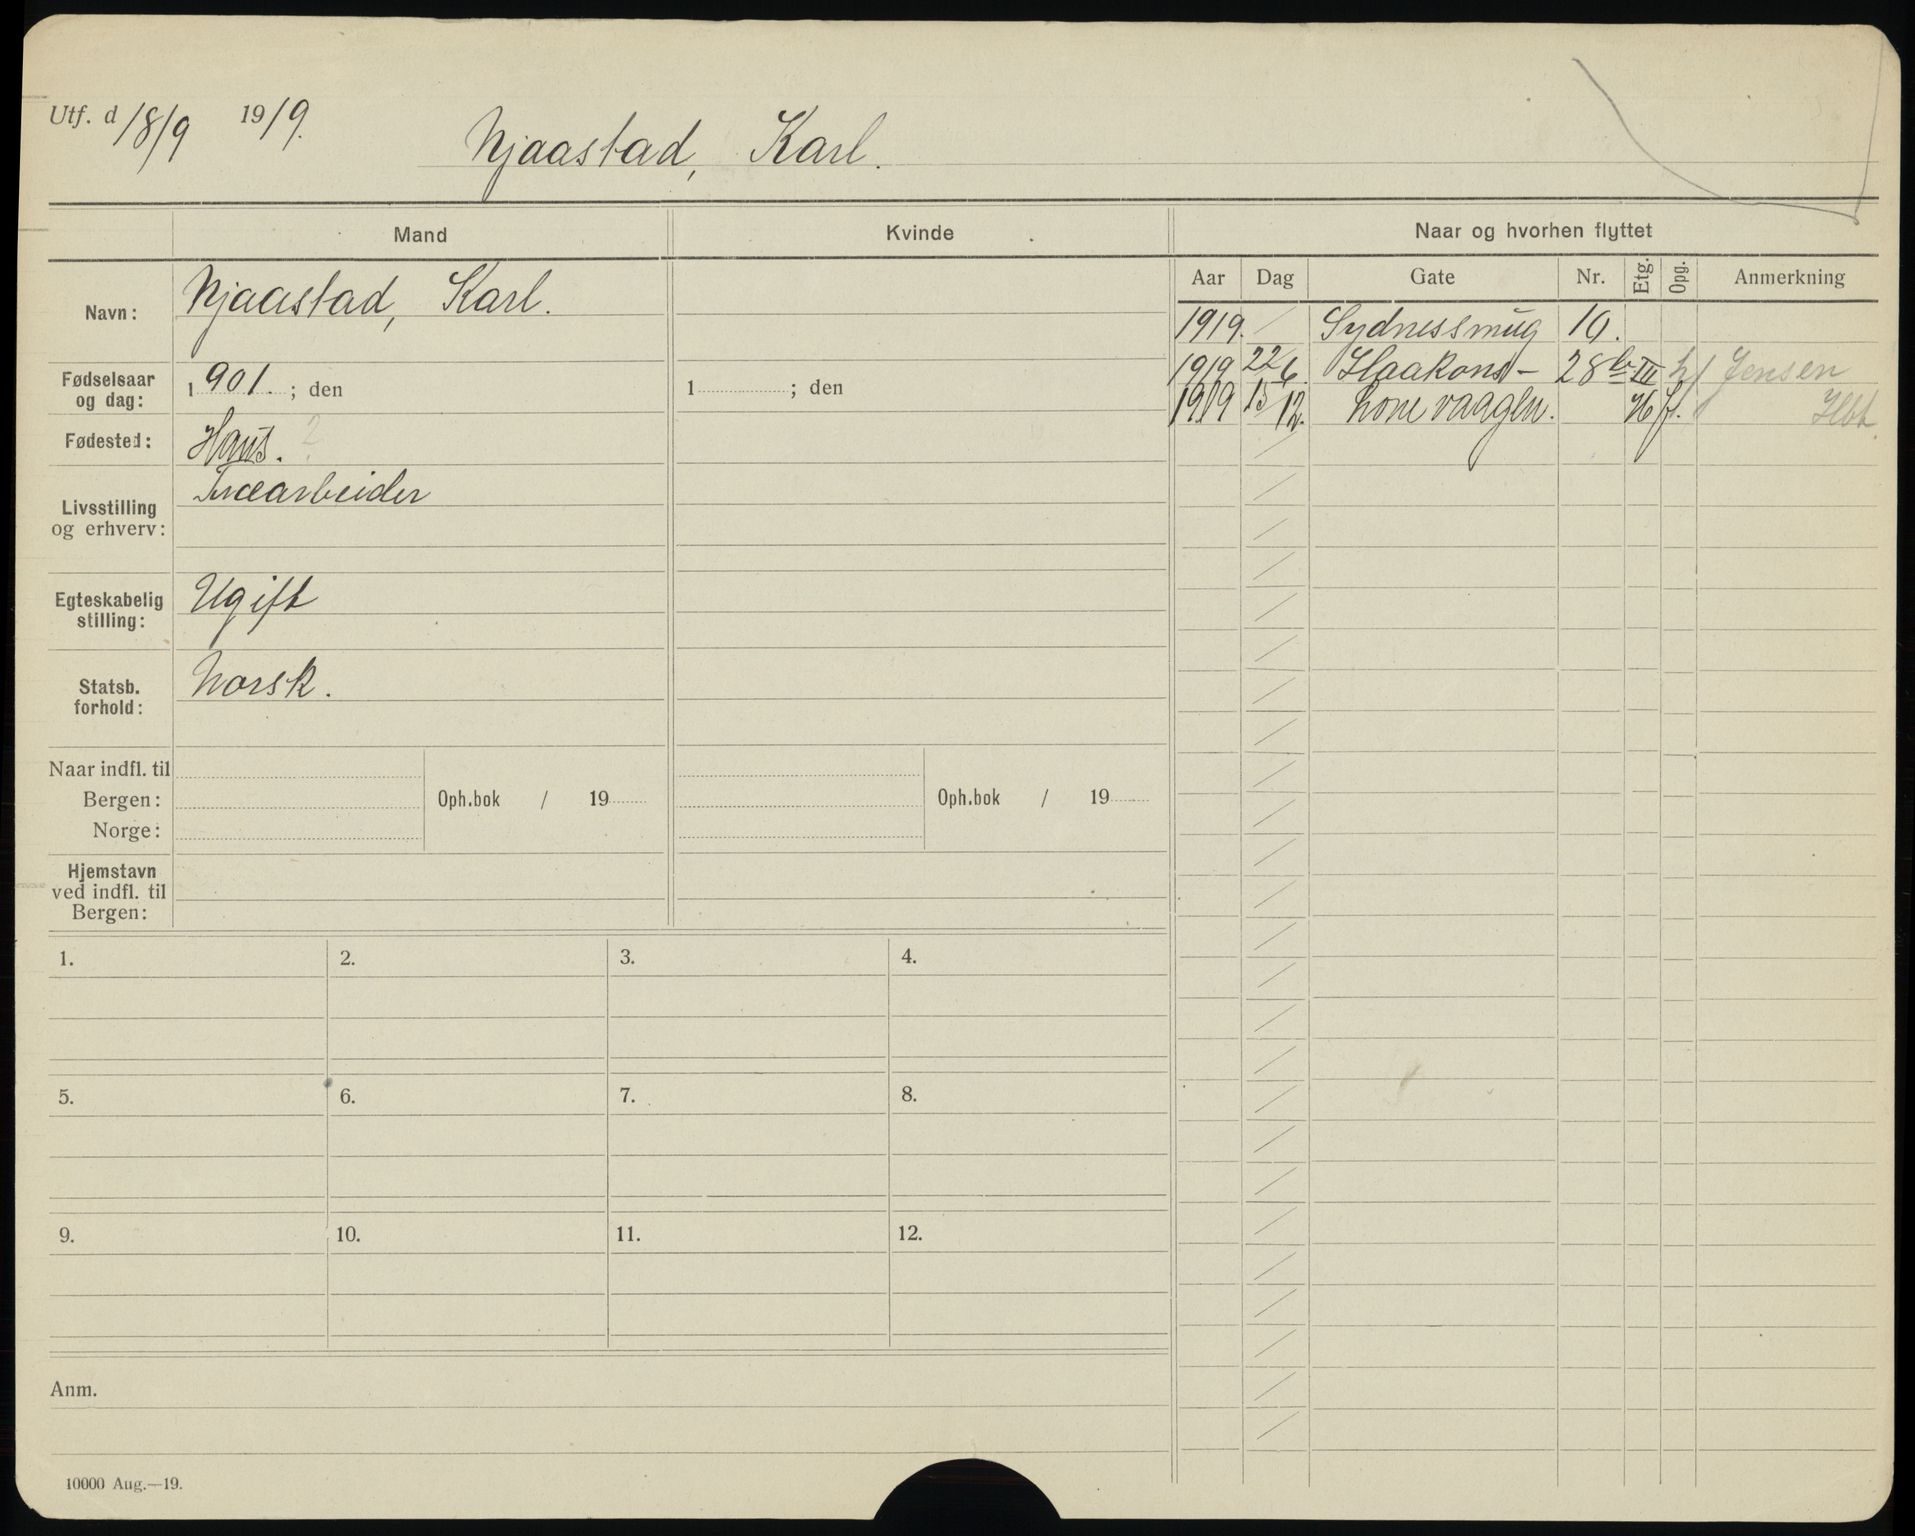 Utf. d 18/9 1919.
Njaastad, Karl.
Mand Kvinde Naar og hvorhen flyttet
Aar Dag Gate Nr. Etg. Opg. Anmerkning
Navn: Njaastad, Karl.
1919. / Sydnessmug 10.
1919 22/6 Haakons- 28 b III h/ Jensen
1919 15/12. Lonevaagen.
Fødselsaar
og dag: 1901. ; den 1 ; den
Fødested: Haus. ?
Livsstilling
og erhverv: Træarbeider
Egteskabelig
stilling: Ugift
Statsb.
forhold: Norsk.
Naar indfl. til
Bergen: Oph.bok / 19 Oph.bok / 19
Norge:
Hjemstavn
ved indfl. til
Bergen:
1. 2. 3. 4.
5. 6. 7. 8.
9. 10. 11. 12.
Anm.
10000 Aug.—19.